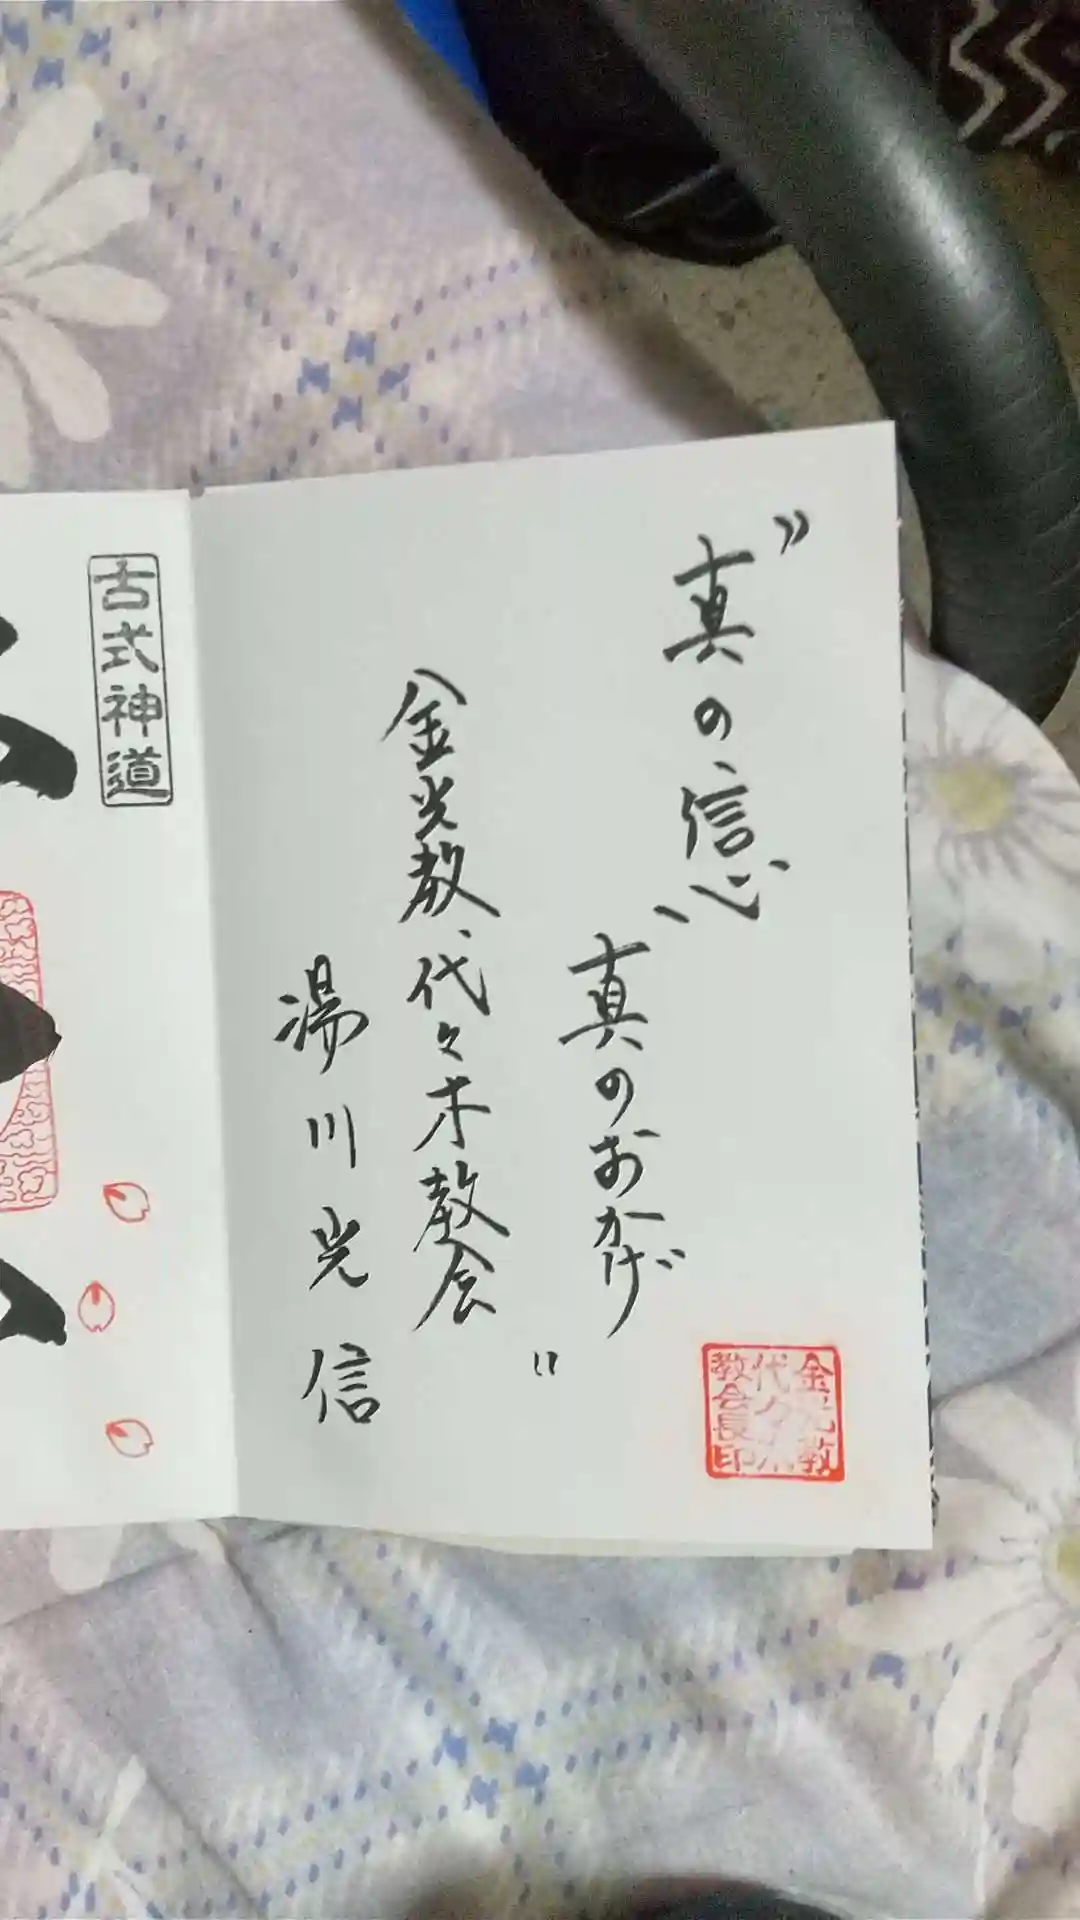 "真の信心
真のおかげ"
金光教代々木教会
湯川光信
金光教
代々木
教会長印
古式神道